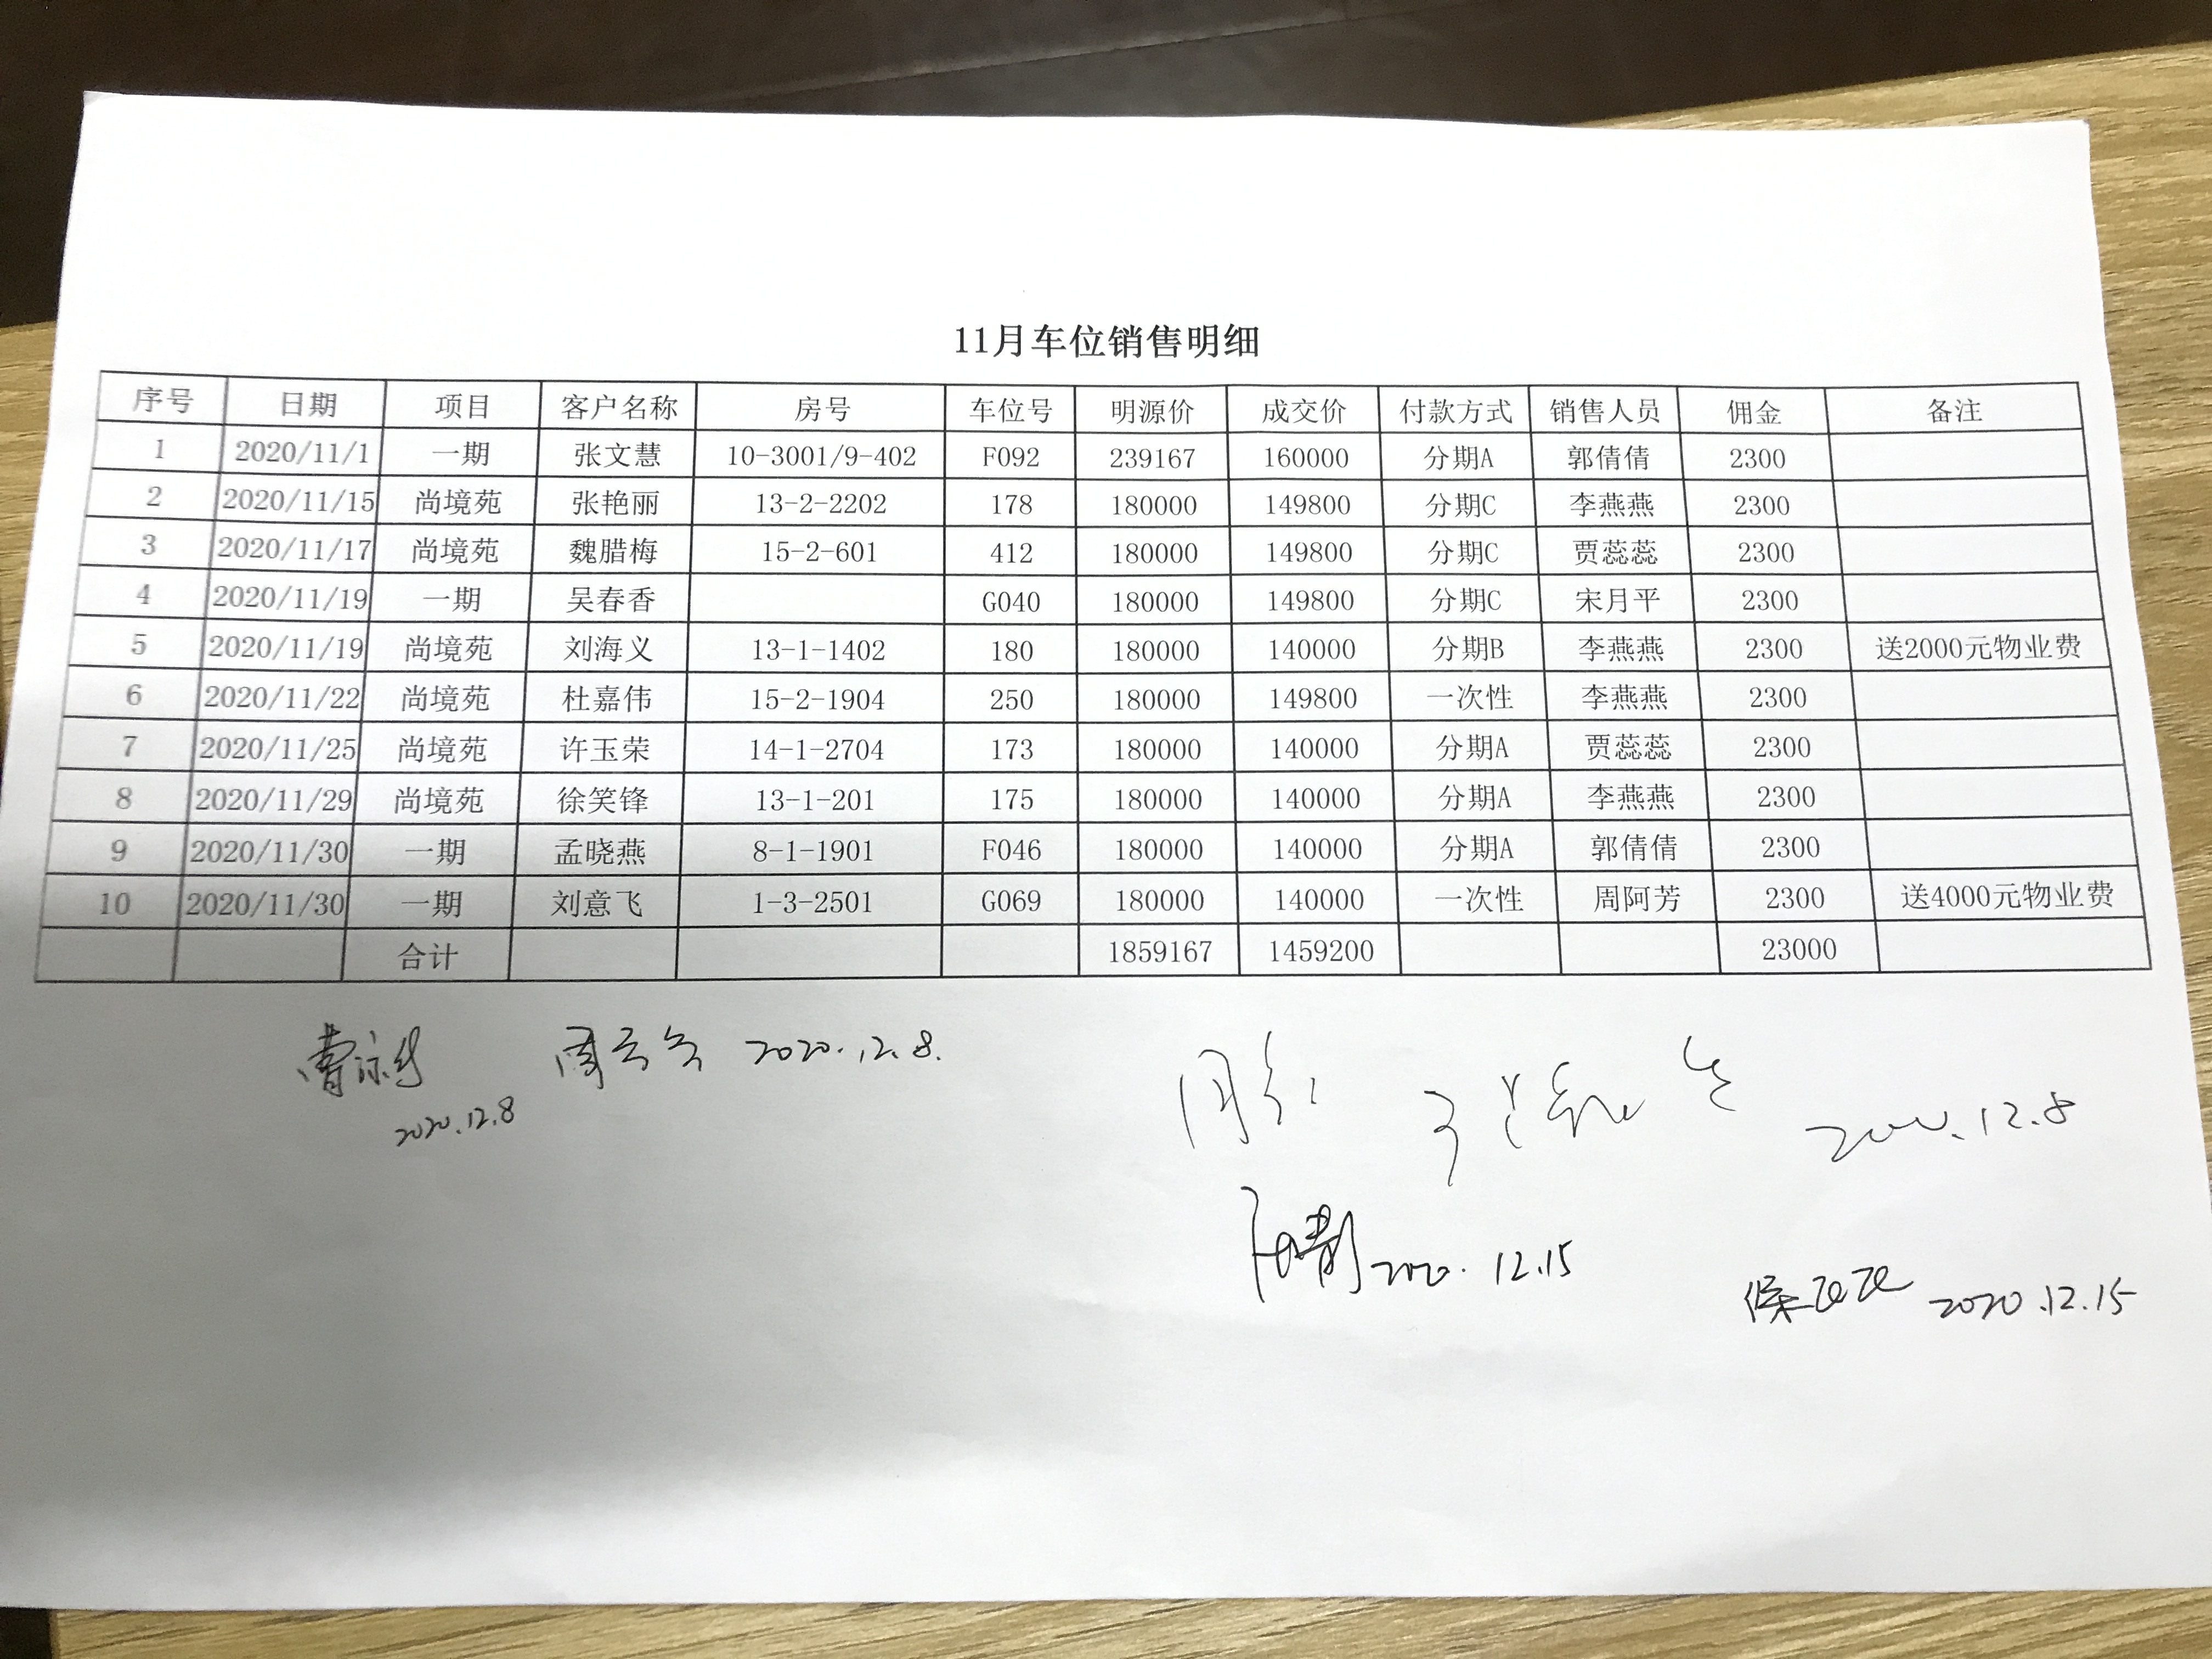 11月车位销售明细
序号 日期 项目 客户名称 房号 车位号 明源价 成交价 付款方式 销售人员 佣金 备注
1 2020/11/1 一期 张文慧 10-3001/9-402 F092 239167 160000 分期A 郭倩倩 2300
2 2020/11/15 尚境苑 张艳丽 13-2-2202 178 180000 149800 分期C 李燕燕 2300
3 2020/11/17 尚境苑 魏腊梅 15-2-601 412 180000 149800 分期C 贾蕊蕊 2300
4 2020/11/19 一期 吴春香 G040 180000 149800 分期C 宋月平 2300
5 2020/11/19 尚境苑 刘海义 13-1-1402 180 180000 140000 分期B 李燕燕 2300 送2000元物业费
6 2020/11/22 尚境苑 杜嘉伟 15-2-1904 250 180000 149800 一次性 李燕燕 2300
7 2020/11/25 尚境苑 许玉荣 14-1-2704 173 180000 140000 分期A 贾蕊蕊 2300
8 2020/11/29 尚境苑 徐笑锋 13-1-201 175 180000 140000 分期A 李燕燕 2300
9 2020/11/30 一期 孟晓燕 8-1-1901 F046 180000 140000 分期A 郭倩倩 2300
10 2020/11/30 一期 刘意飞 1-3-2501 G069 180000 140000 一次性 周阿芳 2300 送4000元物业费
合计 1859167 1459200 23000
2020.12.8.
2020.12.8
2020.12.8
2020.12.15
2020.12.15